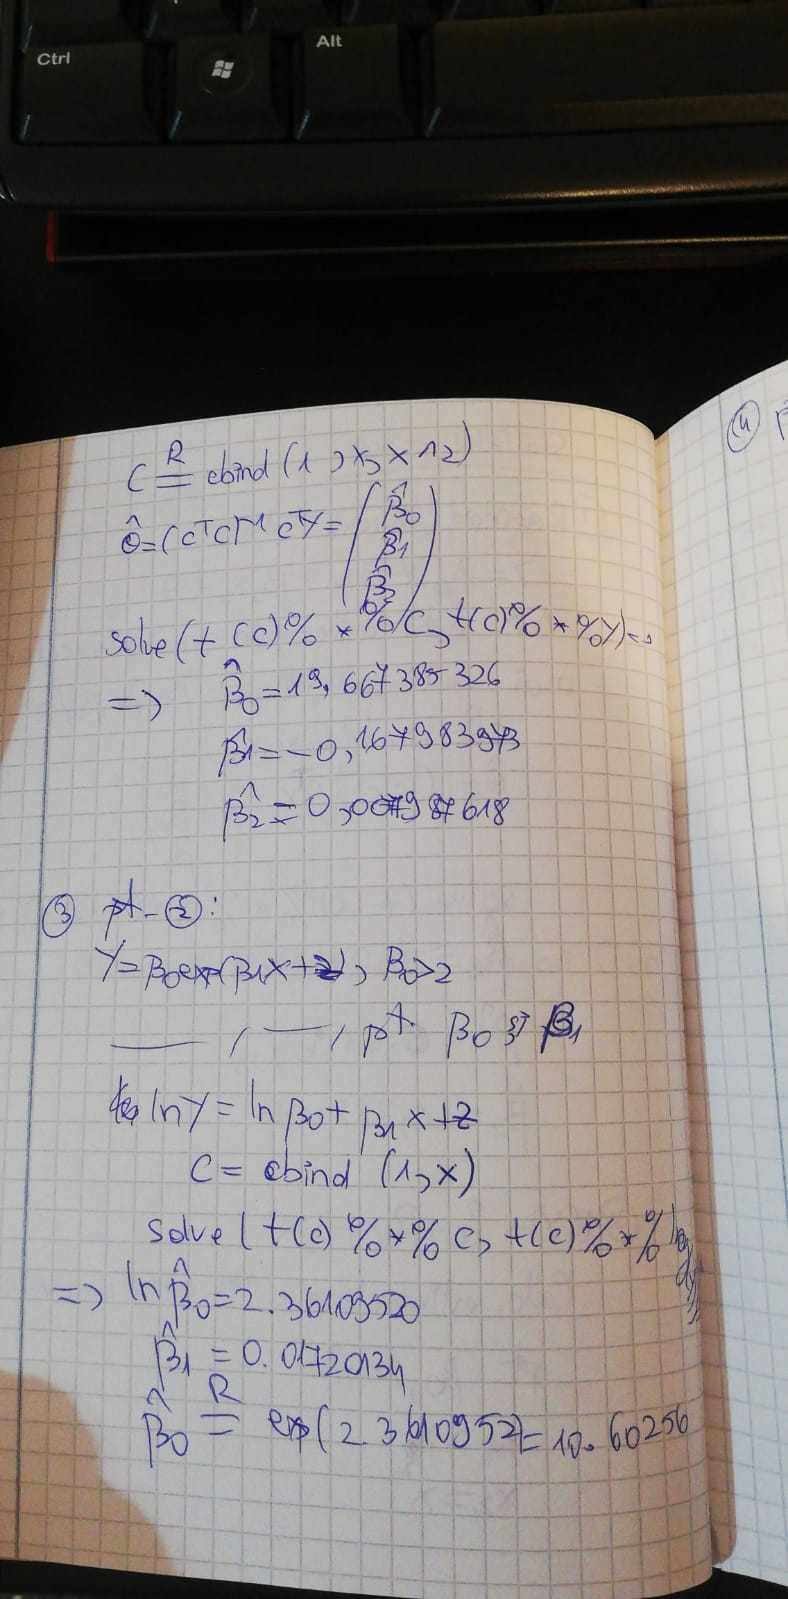 Ctrl
Alt
C =^R cbind (1, x, x^2)
θ̂ = (CᵀC)⁻¹ CᵀY = (β̂0
β̂1
β̂2)
solve (t(C) %*% C, t(C) %*% Y) =>
=> β̂0 = 19,667385326
β̂1 = -0,167983973
β̂2 = 0,007987618
③ pt- ②:
Y = β0 exp(β1x + z), β0 > 2
—, —, pt β0 și β1
ln Y = ln β0 + β1 x + z
C = cbind (1, x)
solve (t(C) %*% C, t(C) %*% log
=> ln β̂0 = 2.36109520
β̂1 = 0.01720134
β̂0 =^R exp(2.3610952) = 10.60256
④